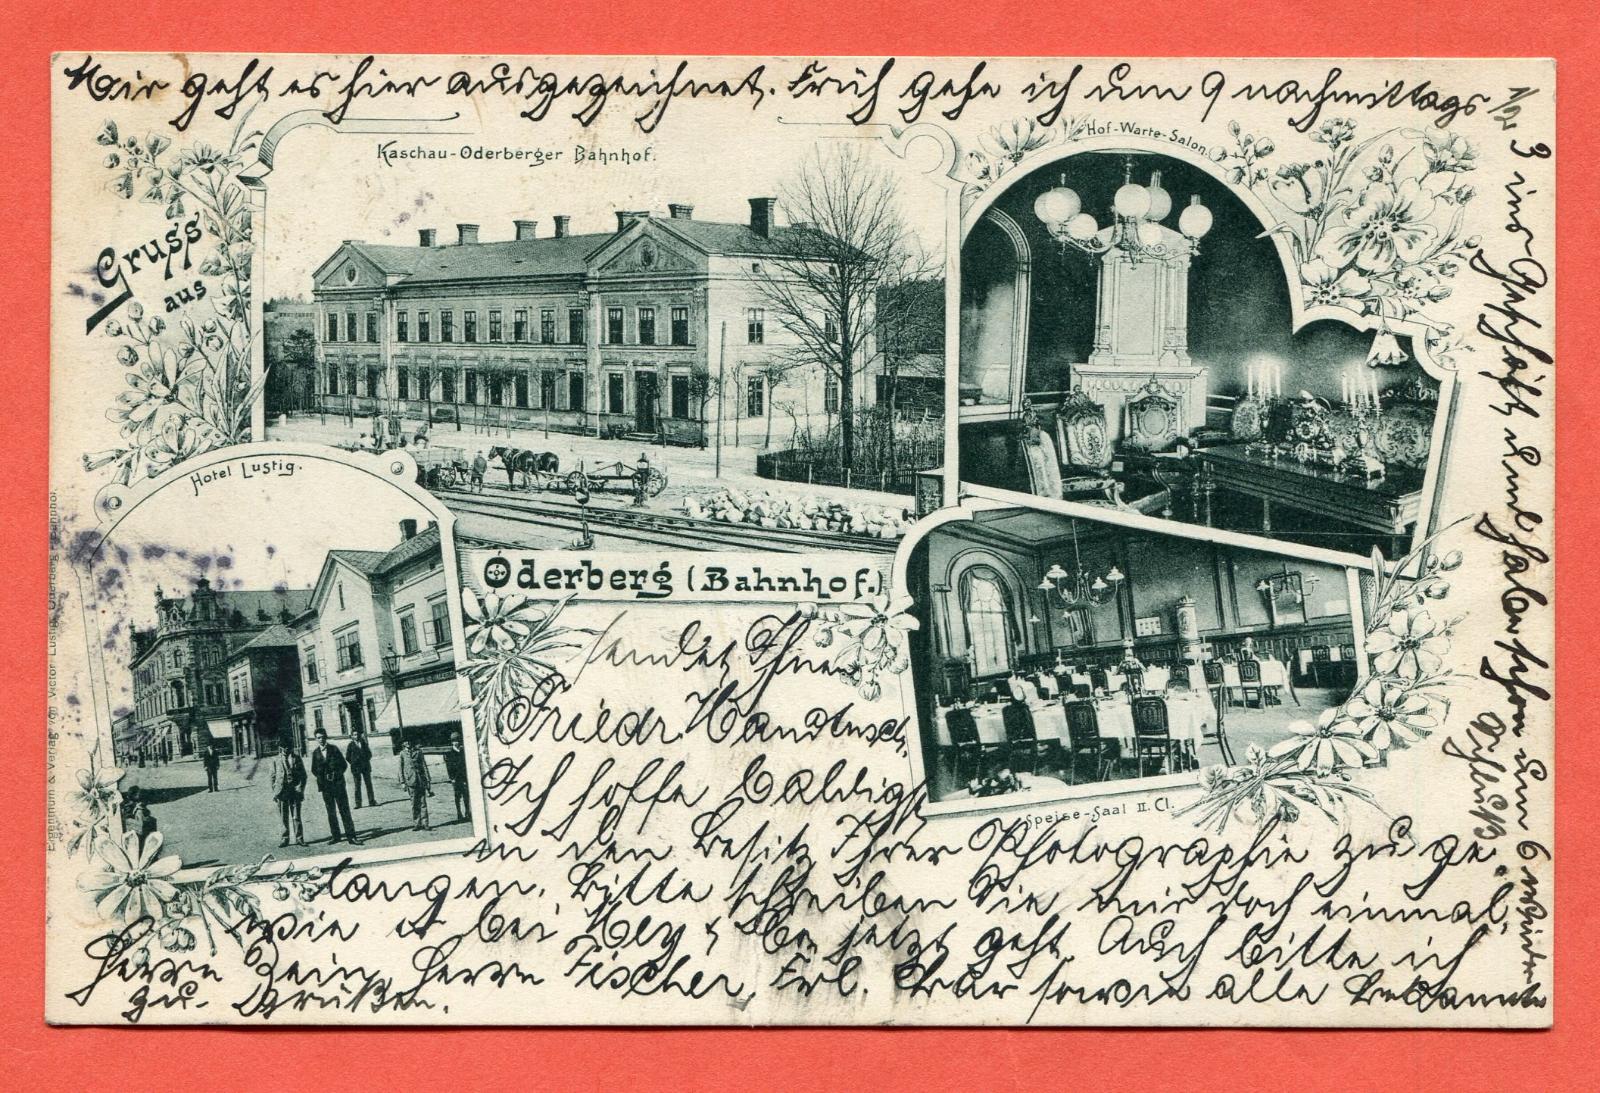 Mir geht es hier ausgezeichnet. Früh gehe ich um 9 nachmittags
1/2 3 ins Geschäft und habe schon um 6 wieder
Schluß.
Kaschau-Oderberger Bahnhof.
Hof-Warte-Salon.
Gruss
aus
Hotel Lustig.
Oderberg (Bahnhof.)
Speise-Saal II. Cl.
Eigenthum & Verlag von Victor Lustig, Oderberg Bahnhof.
sendet Ihnen
Friedr.
Ich hoffe baldigst
in den Besitz Ihrer Photographie zu ge
langen. Bitte schreiben Sie mir doch einmal,
wie es bei jetzt geht. Auch bitte ich
Herrn Herrn Fischer, Frl. sowie alle Bekannte
zu grüßen.